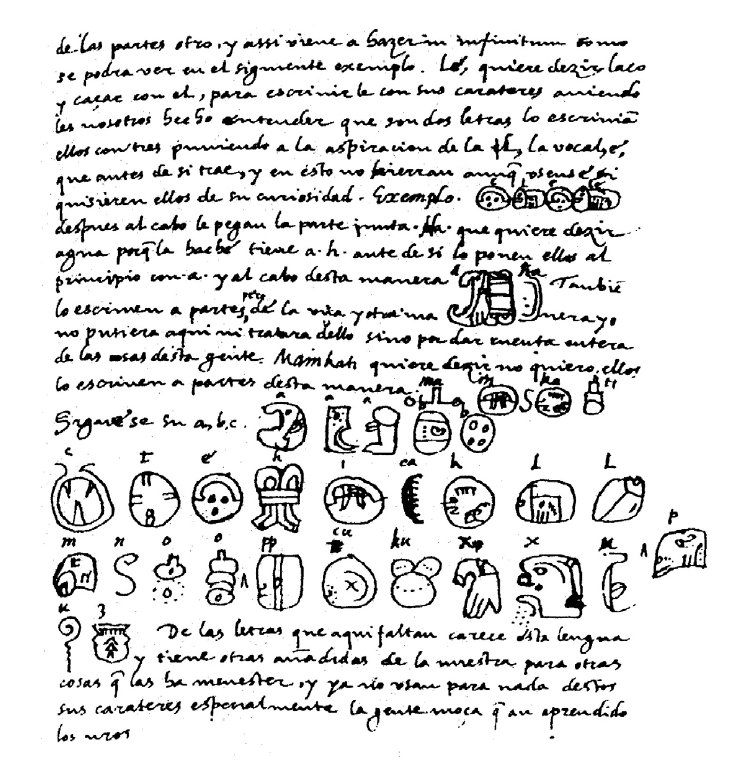 de las partes otro, y assi viene a hazer in infinitum como
se podra ver en el siguiente exemplo. Lé, quiere dezir laço
y caçar con el, para escrivirle con sus carateres aviendo
les nosotros hecho entender que son dos letras lo escriviã
ellos con tres puniendo a la aspiracion de la l, la vocal, é,
que antes de si trae, y en esto no hierran aunq̃ usense si
quisieren ellos de su curiosidad. Exemplo.
despues al cabo le pegan la parte junta. Ha. que quiere dezir
agua porq̃ la haché tiene a. h. ante de si lo ponen ellos al
principio con a. y al cabo desta manera a ha Tanbiẽ
lo escriven a partes, pero de la una y otra ma nera yo
no pusiera aqui ni tratara dello sino por dar cuenta entera
de las cosas desta gente. Mainkati quiere dezir no quiero, ellos
lo escriven a partes desta manera ma in ka ti
Siguese su a, b, c. a a a b b
c t é h i ca k l l
m n o o pp cu ku x x u p
u z De las letras que aqui faltan carece esta lengua
y tiene otras añadidas de la nuestra para otras
cosas q̃ las ha menester, y ya no usan para nada destos
sus carateres especialmente la gente moça q̃ an aprendido
los nros